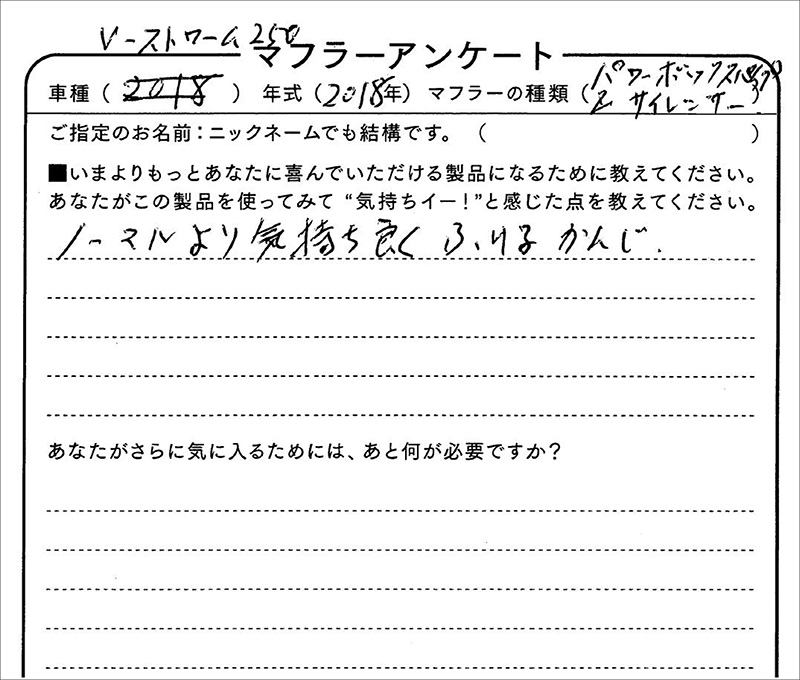 Vーストローム250
マフラーアンケート
車種（ 2018 ） 年式（2018年） マフラーの種類（パワーボックスパイプ
& サイレンサー）
ご指定のお名前：ニックネームでも結構です。（ ）
■いまよりもっとあなたに喜んでいただける製品になるために教えてください。
あなたがこの製品を使ってみて “気持ちイー！”と感じた点を教えてください。
ノーマルより気持ち良く ふけるかんじ.
あなたがさらに気に入るためには、あと何が必要ですか？